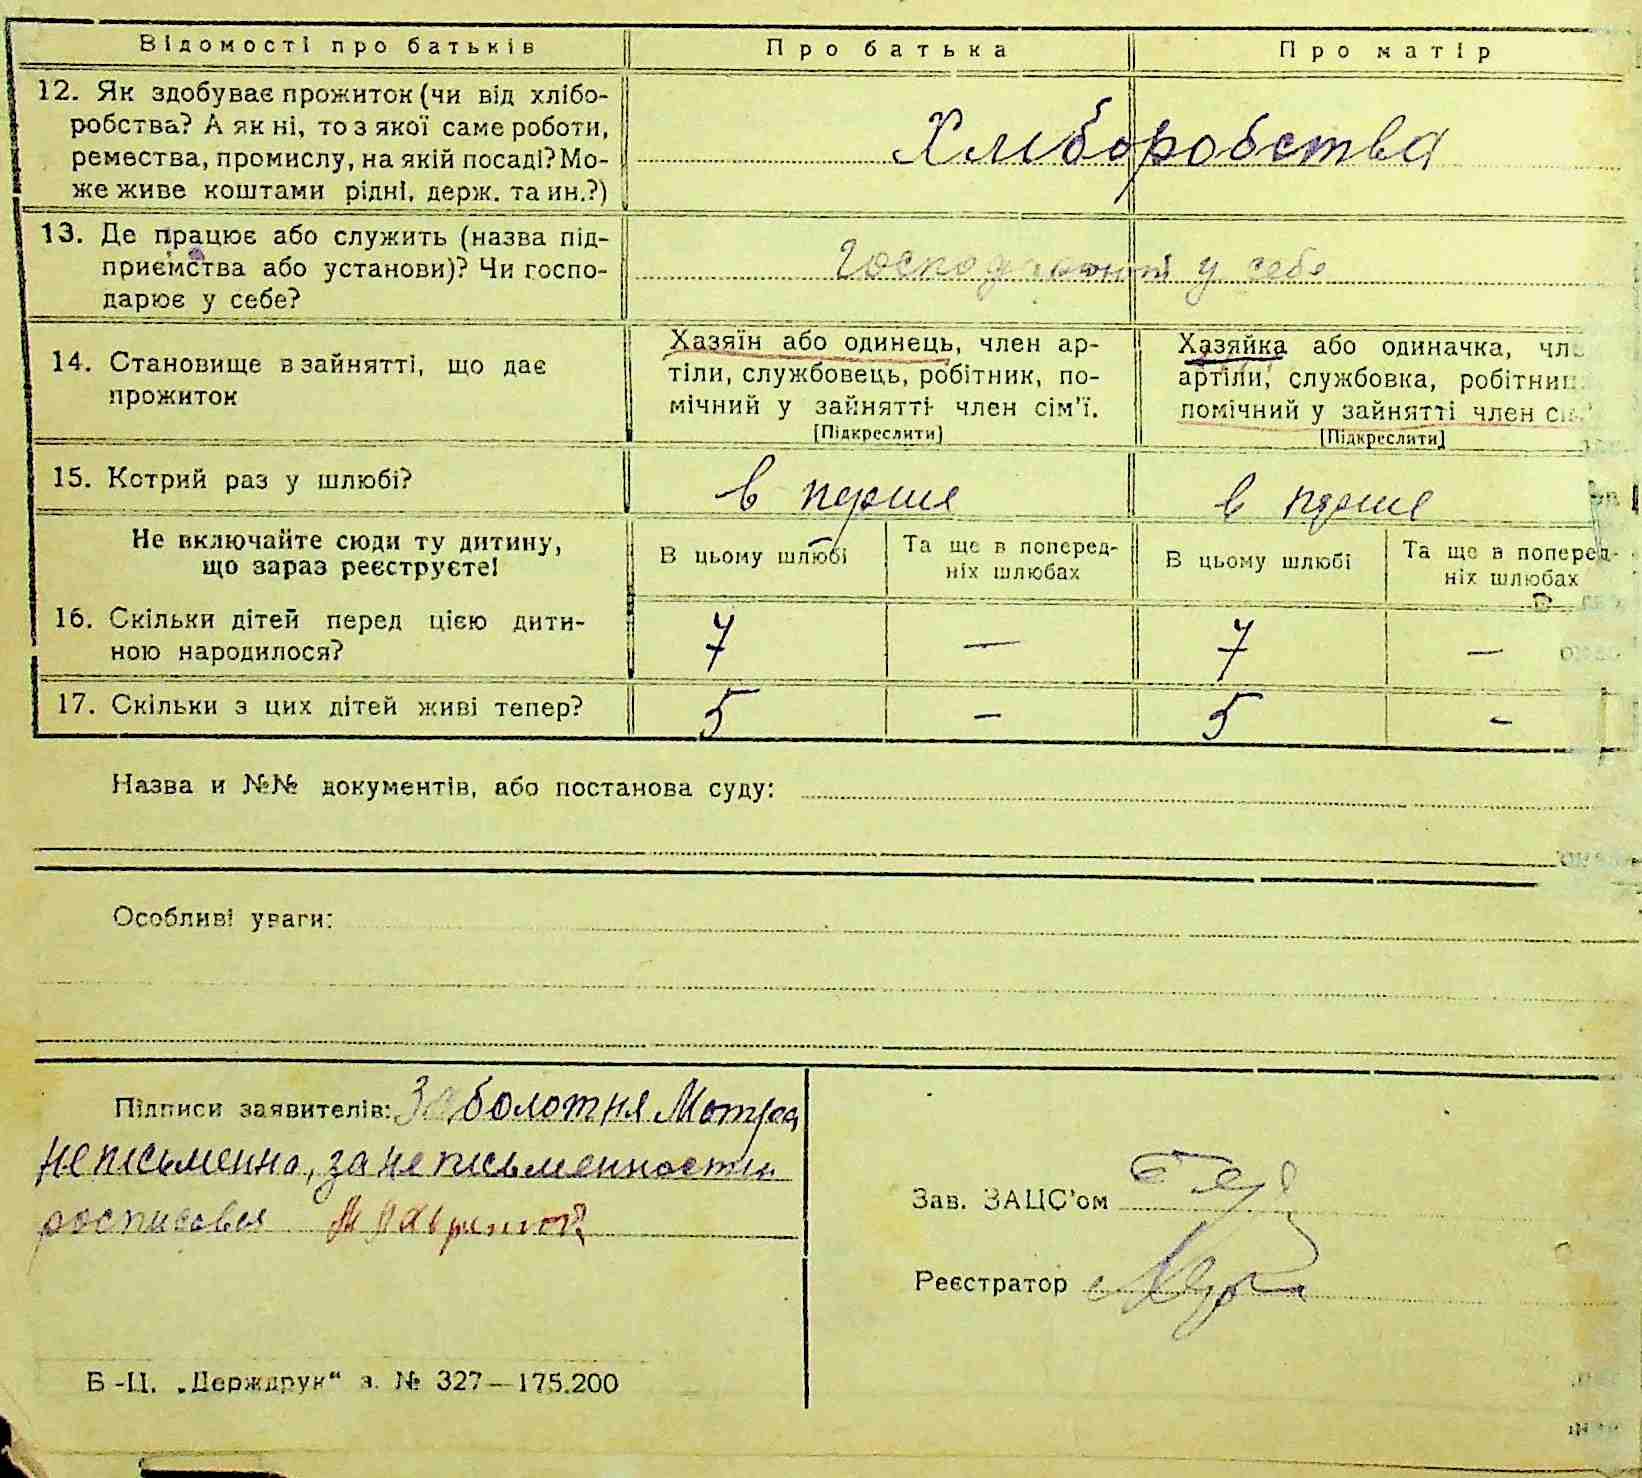 Відомості про батьків Про батька Про матір
12. Як здобуває прожиток (чи від хлібо-
робства? А як ні, то з якої саме роботи,
ремества, промислу, на якій посаді? Мо-
же живе коштами рідні, держ. та ин.?)
Хліборобства
13. Де працює або служить (назва під-
приємства або установи)? Чи госпо-
дарює у себе?
у себе
14. Становище в зайнятті, що дає
прожиток
Хазяїн або одинець, член ар-
тіли, службовець, робітник, по-
мічний у зайнятті член сім'ї.
[Підкреслити]
Хазяйка або одиначка, чле
артіли, службовка, робітниц
помічний у зайнятті член сім'
[Підкреслити]
15. Котрий раз у шлюбі? в перше в перше
Не включайте сюди ту дитину,
що зараз реєструєте!
В цьому шлюбі
Та ще в поперед-
ніх шлюбах
В цьому шлюбі
Та ще в поперед-
ніх шлюбах
16. Скільки дітей перед цією дити-
ною народилося?
7 — 7 —
17. Скільки з цих дітей живі тепер? 5 — 5 -
Назва и №№ документів, або постанова суду:
Особливі уваги:
Підписи заявителів: Заболотня Мотря
неписьменна, за неписьменностю
росписався
Зав. ЗАЦС'ом
Реєстратор
Б-Ц. „Держдрук" з. № 327—175.200